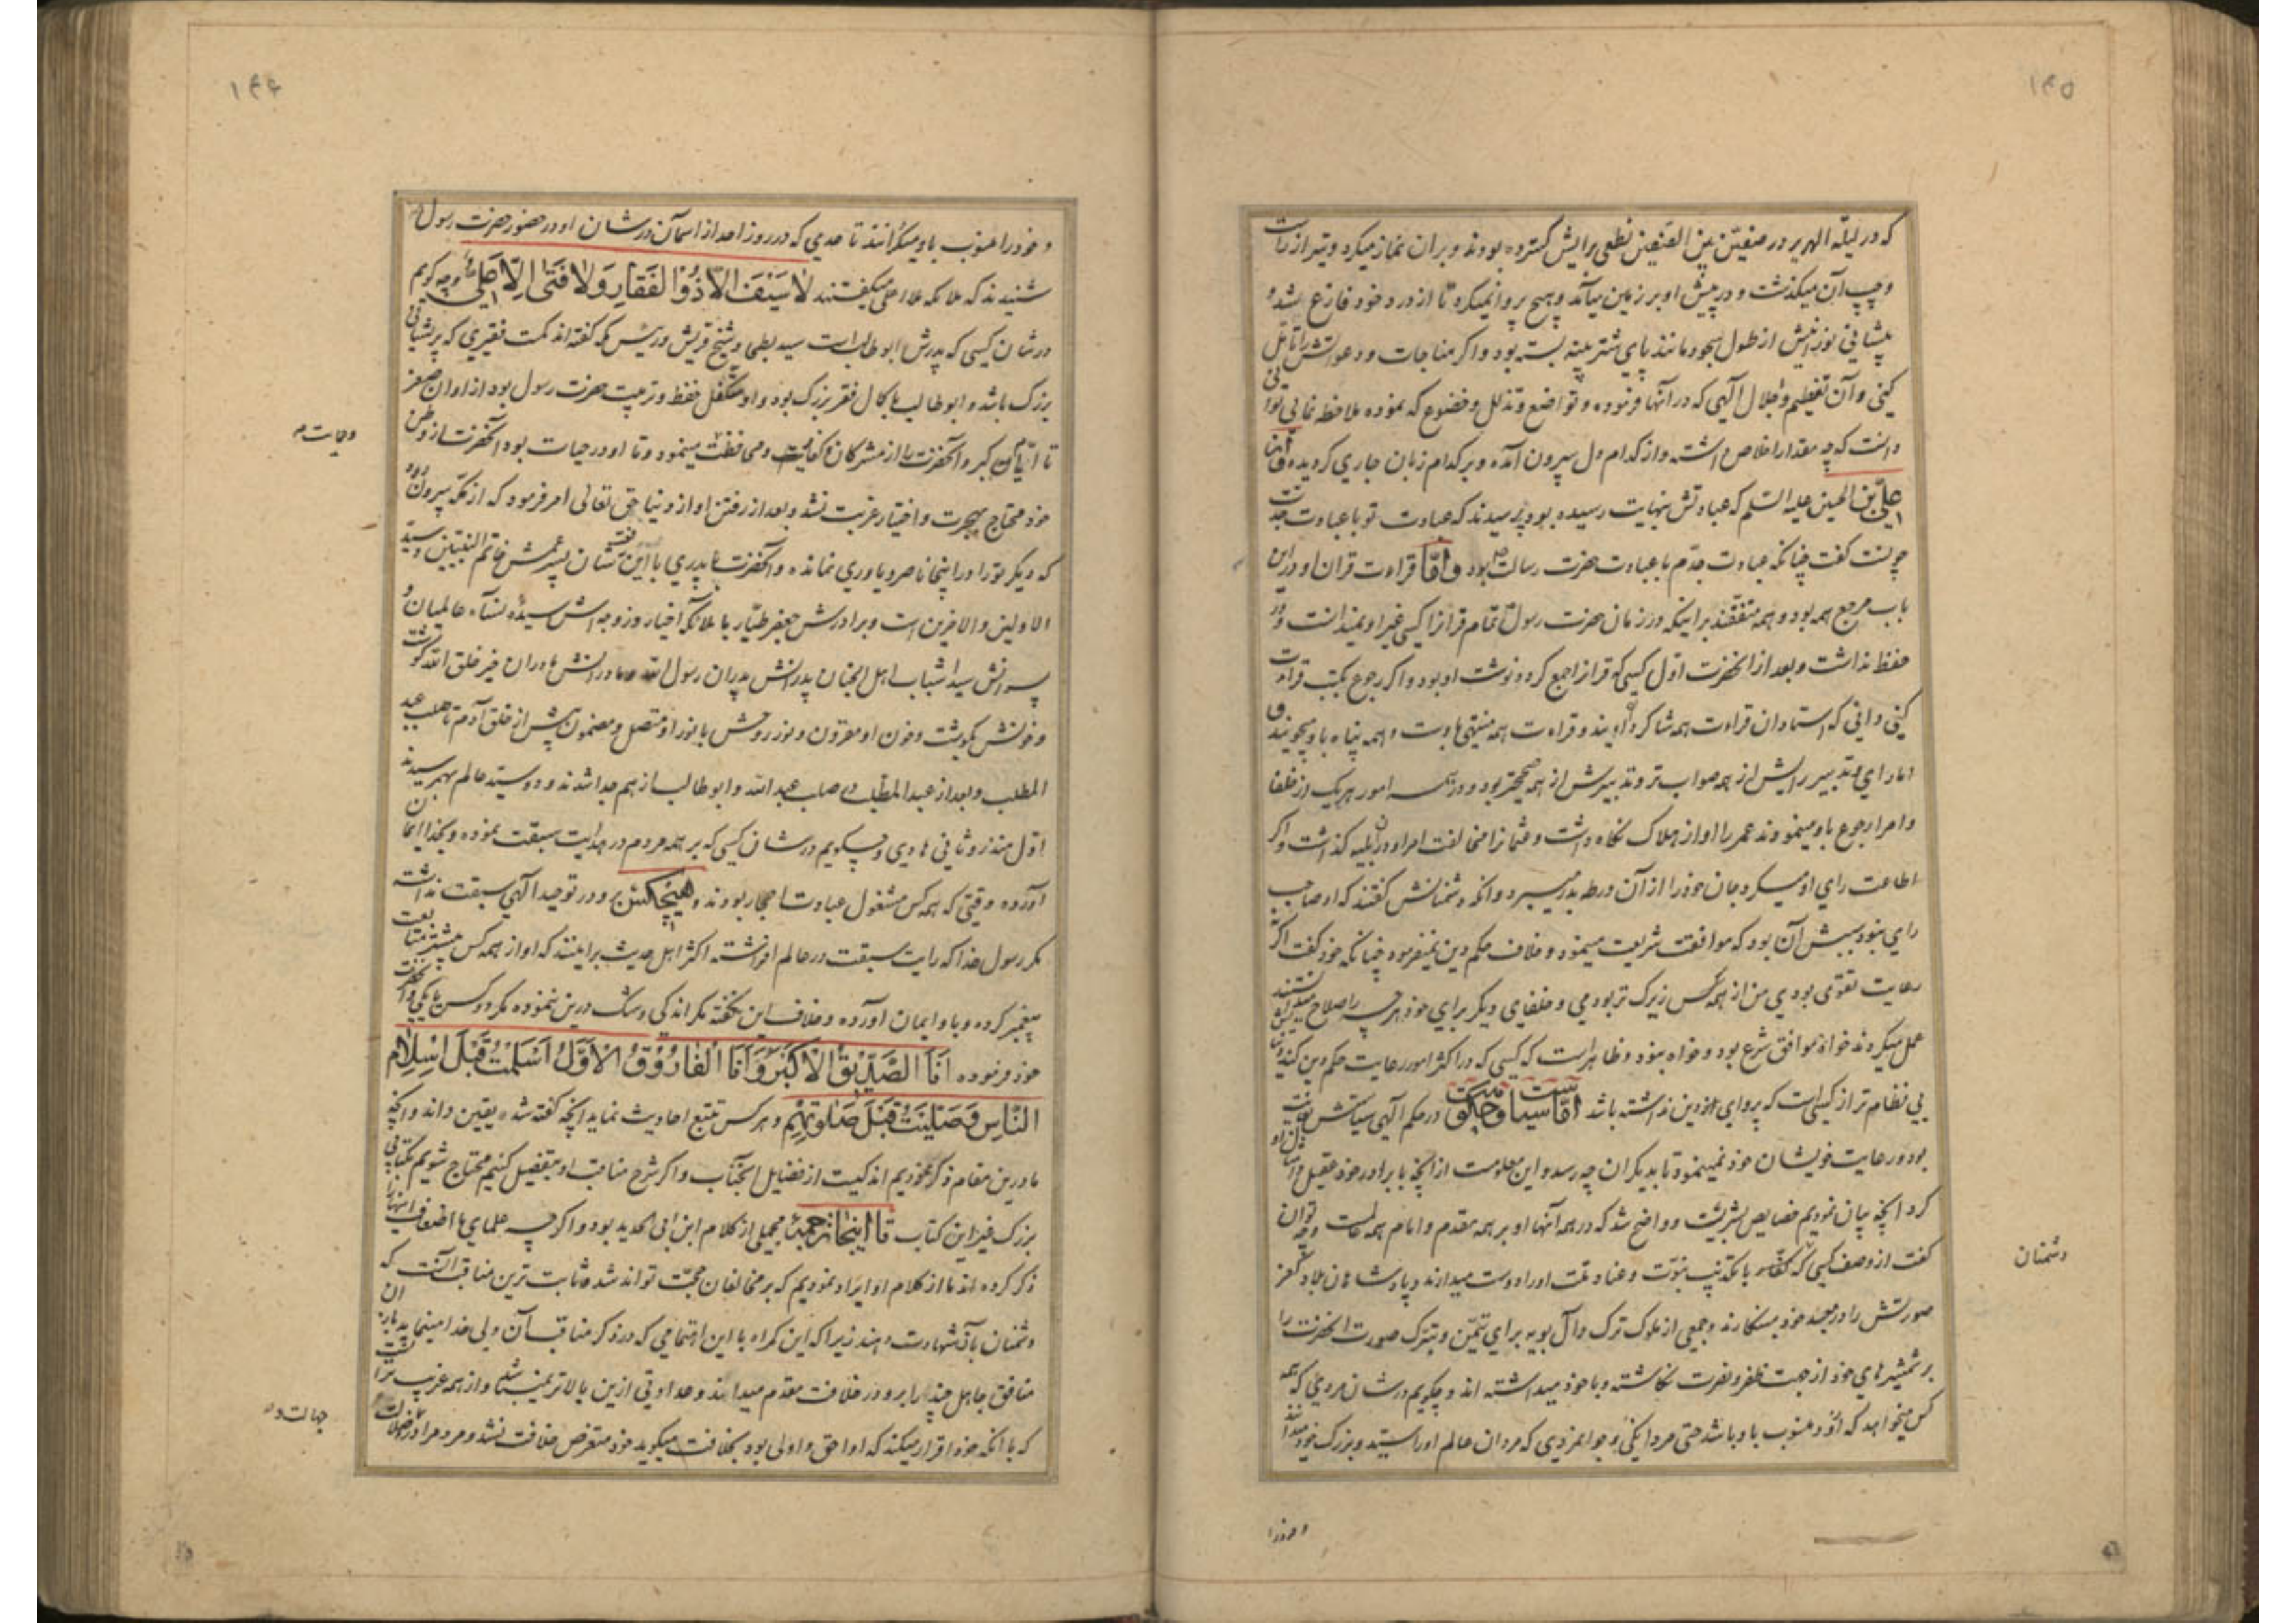 ۱۴۵
که در لیلة الهریر در صفین بین الصفین نطعی برایش گسترده بودند و بران نماز میکرد و تیر از راست
و چپ آن میگذشت و در پیش او بر زمین میآمد و هیچ پروا نمیکرد تا از ورد خود فارغ شد و
پیشانی نورانیش از طول سجود مانند پای شتر پینه بسته بود و اگر مناجات و دعواتش را تأمل
کنی و آن تعظیم و اجلال الهی که در آنها فرموده و تواضع و تذلل و خضوع که نموده ملاحظه نمایی توانی
دانست که چه مقدار اخلاص داشته و از کدام دل بیرون آمده و بر کدام زبان جاری گردیده و از
علی بن الحسین علیه السلم که عبادتش بنهایت رسیده بود پرسیدند که عبادت تو با عبادت جدت
چونست گفت چنانکه عبادت جدم با عبادت حضرت رسالت بود و امّا قراءت قران او در این
باب مرجع همه بود و همه متفقند بر اینکه در زمان حضرت رسول تمام قرانرا کسی غیر او نمیدانست و در
حفظ نداشت و بعد از انحضرت اول کسی که قرانرا جمع کرد و نوشت او بود و اگر رجوع بکتب قراءت
کنی دانی که استادان قراءت همه شاکرد اویند و قراءت همه منتهی باوست و همه پناه باو میجویند و
اما رای و تدبیر رایش از همه صواب تر و تدبیرش از همه صحیحتر بود و در همه امور هر یک از خلفا
و امرا رجوع باو مینمودند عمر را او از هلاک نگاه داشت و عثمانرا مخالفت امر او در ان بلیه گذاشت و اگر
اطاعت رای او میکرد جان خود را از آن ورطه بدر میبرد و انکه دشمنانش گفتند که او صاحب
رای نبود سببش آن بود که موافقت شریعت مینمود و خلاف حکم دین نمیفرمود چنانکه خود گفت اگر
رعایت تقوی نبودی من از همه کس زیرک تر بودمی و خلفای دیگر برای خود هر چه را صلاح میدانستند
عمل میکردند خواه موافق شرع بود و خواه نبود و ظاهر است که کسی که در اکثر امور رعایت حکم دین کند
بی نظام تر از کسی است که پروای ازین نداشته باشد امّا سیاست و حکومت در حکم الهی سیاستش
بود و رعایت خویشان خود نمینمود تا بدیگران چه رسد و این معلومست از انچه با برادر خود عقیل
کرد انچه بیان نمودیم خصایص بشریت و واضح شد که در همه آنها او بر همه مقدم و امام همه است و چه توان
گفت از وصف کسی که کفار با تکذیب نبوت و عناد ملت او را دوست میدارند و پادشاهان بلاد کفر
صورتش را در معبد خود مینگارند و جمعی از ملوک ترک و آل بویه برای تیمن و تبرک صورت انحضرت را
بر شمشیرهای خود از جهت ظفر و نصرت نگاشته و با خود میداشته اند و چگویم در شان مردی که همه
کس میخواهد که خود منسوب باو باشد حتی مردانگی و جوانمردی که مردان عالم او را سید و بزرگ خود میدانند
دشمنان
و خود را
۱۴۶
و خود را منسوب باو میگردانند تا حدی که در روز احد از اسمان در شان او در حضور حضرت رسول
شنیدند که ملائکه ملأ اعلی میگفتند لا سَیْفَ اِلّا ذُوالفَقارِ وَلا فَتیٰ اِلّا عَلِی و چه گویم
در شان کسی که پدرش ابوطالب است سید بطحا و شیخ قریش و رئیس مکه گفته اند کمست فقیری که بر پیشانی
بزرگ باشد و ابوطالب با کمال فقر بزرگ بود و او متکفل حفظ و تربیت حضرت رسول بود از اوان صغر
تا ایام کبر و آنحضرت را از مشرکان کفایت و محافظت مینمود و تا او در حیات بود آنحضرت از وطن
و حمایت
خود محتاج بهجرت و اختیار غربت نشد و بعد از رفتن او از دنیا حق تعالی امر فرمود که از مکه بیرون رو
که دیگر تو را در اینجا ناصر و یاوری نمانده و آنحضرت با پدری با این شان پسر عمش خاتم النبیین و سید
الاولین والاخرین است و برادرش جعفر طیار با ملائکه اخیار و زوجه اش سیده نسآء عالمیان و
پسرانش سید شباب اهل الجنان پدرانش پدران رسول الله و مادرانش مادران خیر خلق الله گوشت
و خونش بگوشت و خون او مقرون و نور روحش با نور او متصل و مضمون پیش از خلق آدم تا صلب عبد
المطلب و بعد از عبد المطلب در صلب عبد الله و ابوطالب از هم جدا شدند و دو سید عالم بهم رسیدند
اول منذر و ثانی هادی و چگویم در شان کسی که بر همه مردم در هدایت سبقت نموده و بخدا ایمان
آورده وقتی که همه کس مشغول عبادت احجار بودند و هیچکس بر او در توحید الهی سبقت نداشته
مگر رسول خدا که رایت سبقت در عالم افراشته اکثر اهل حدیث بر اینند که او از همه کس پیشتر متابعت
پیغمبر کرده و باو ایمان آورده و خلاف این نگفته مگر اندکی و شک درین ننموده مگر دو کس یا یکی و آنحضرت
خود فرموده اَنَا الصِّدّیقُ الاَکبَرُ وَاَنَا الفارُوقُ الاَوَّلُ اَسلَمتُ قَبلَ اِسلامِ
النّاسِ وَصَلَّیتُ قَبلَ صَلاتِهِم و هر کس تتبع احادیث نماید انچه گفته شد یقین داند و انچه
ما درین مقام ذکر نمودیم اندکیست از فضایل آنجناب و اگر شرح مناقب او بتفصیل کنیم محتاج شویم بکتابی
بزرگ غیر این کتاب تا اینجا ترجمه مجملی از کلام ابن ابی الحدید بود و اگر چه علمای ما اضعاف اینها
ذکر کرده اند ما از کلام او ایراد نمودیم که بر مخالفان حجت تواند شد و ثابت ترین مناقب آنست که
دشمنان بآن شهادت دهند زیرا که این گمراه با این اهتمامی که در ذکر مناقب آن ولی خدا مینماید باز ان
منافق جاهل چند را برو در خلافت مقدم میداند و عداوتی ازین بالاتر نمیباشد و از همه غریب تر آنست
که با انکه خود اقرار میکند که او احق و اولی بود بخلافت میگوید خود متعرض خلافت نشد و مردم را در ضلالت
جهالت و